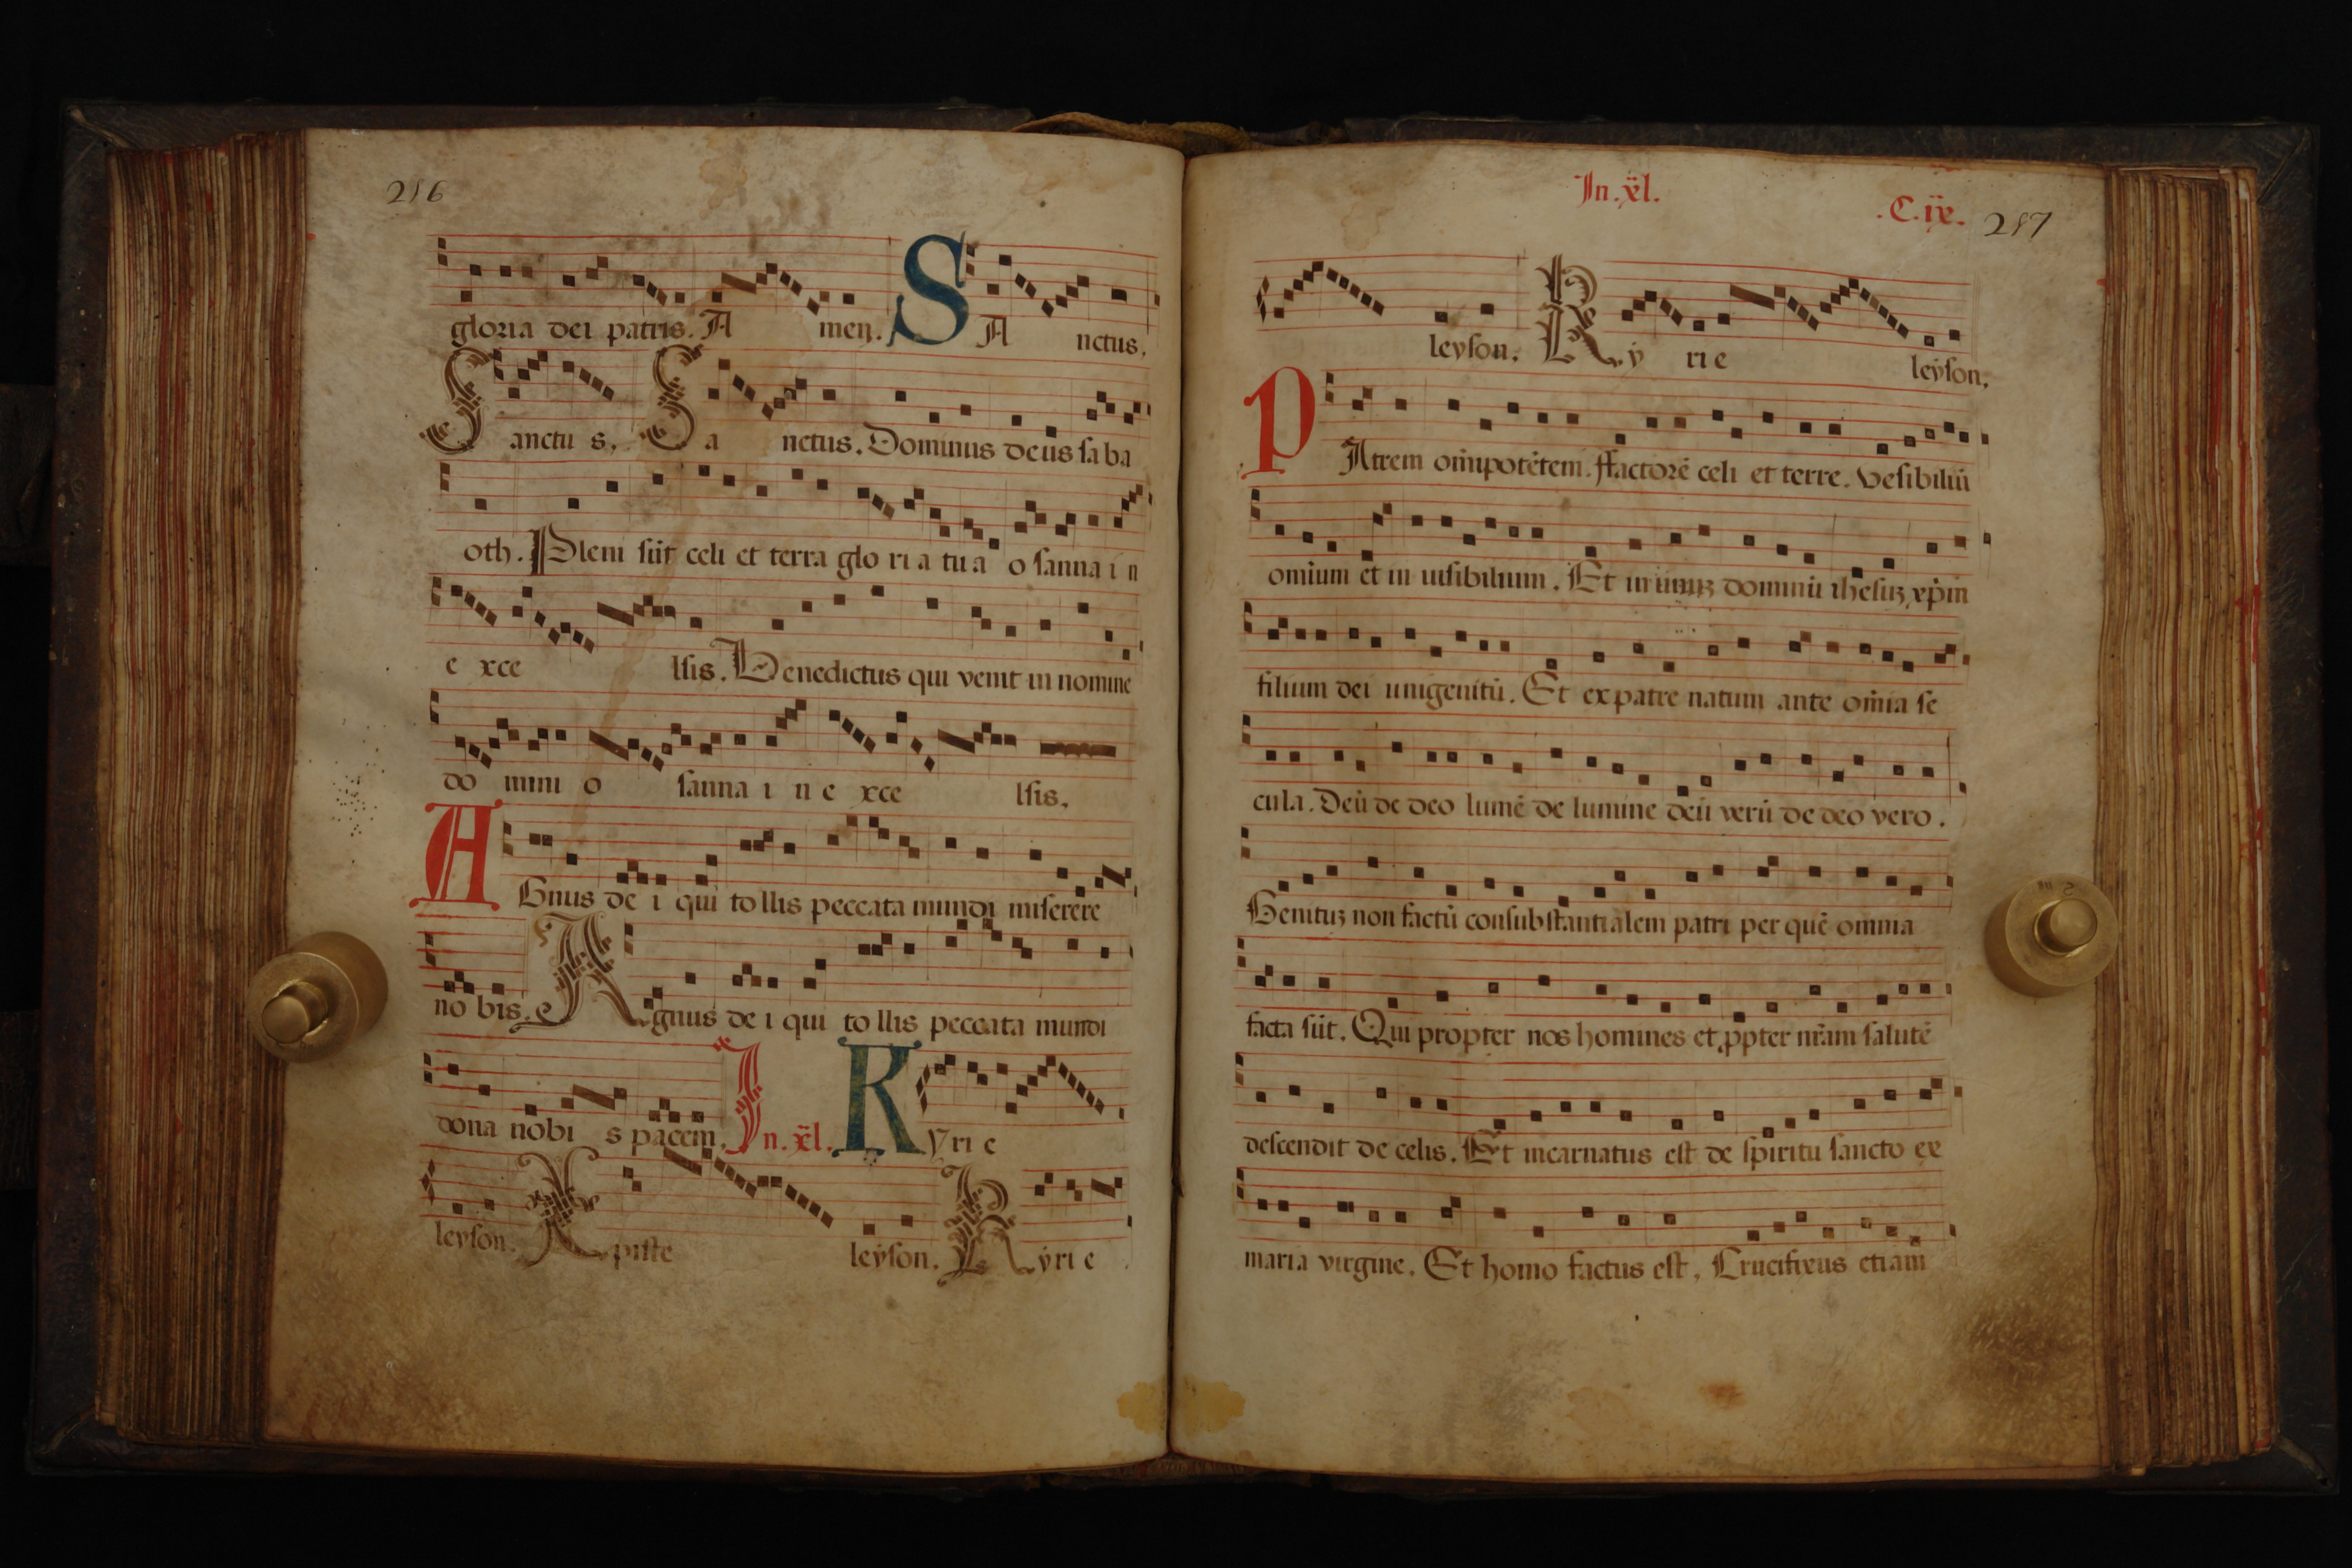 216
gloria dei patris. A men. S A nctus.
Sanctu s. Sa nctus. Dominus deus saba
oth. Pleni sūt celi et terra glo ri a tu a o sanna i n
e xce lsis. Benedictus qui venit in nomine
do mini o sanna i n e xce lsis.
AGnus de i qui to llis peccata mundi miserere
no bis. e Agnus de i qui to llis peccata mundi
dona nobi s pacem. In. xl. Kyri e
leyson. Xpiste leyson. Kyri e
In. xl.
.C. ix. 217
leyson. Ky ri e leyson.
PAtrem omīpotētem. ffactorē celi et terre. Vesibiliū
omium et in uisibilium. Et in unuȝ dominū ihesuȝ xp̄m
filium dei unigenitū. Et ex patre natum ante om̄ia se
cula. Deū de deo lumē de lumine deū verū de deo vero.
Genituȝ non factū consubstantialem patri per quē omnia
facta sūt. Qui propter nos homines et ꝓpter nr̄am salutē
descendit de celis. Et incarnatus est de spiritu sancto ex
maria virgine. Et homo factus est. Crucifixus etiam